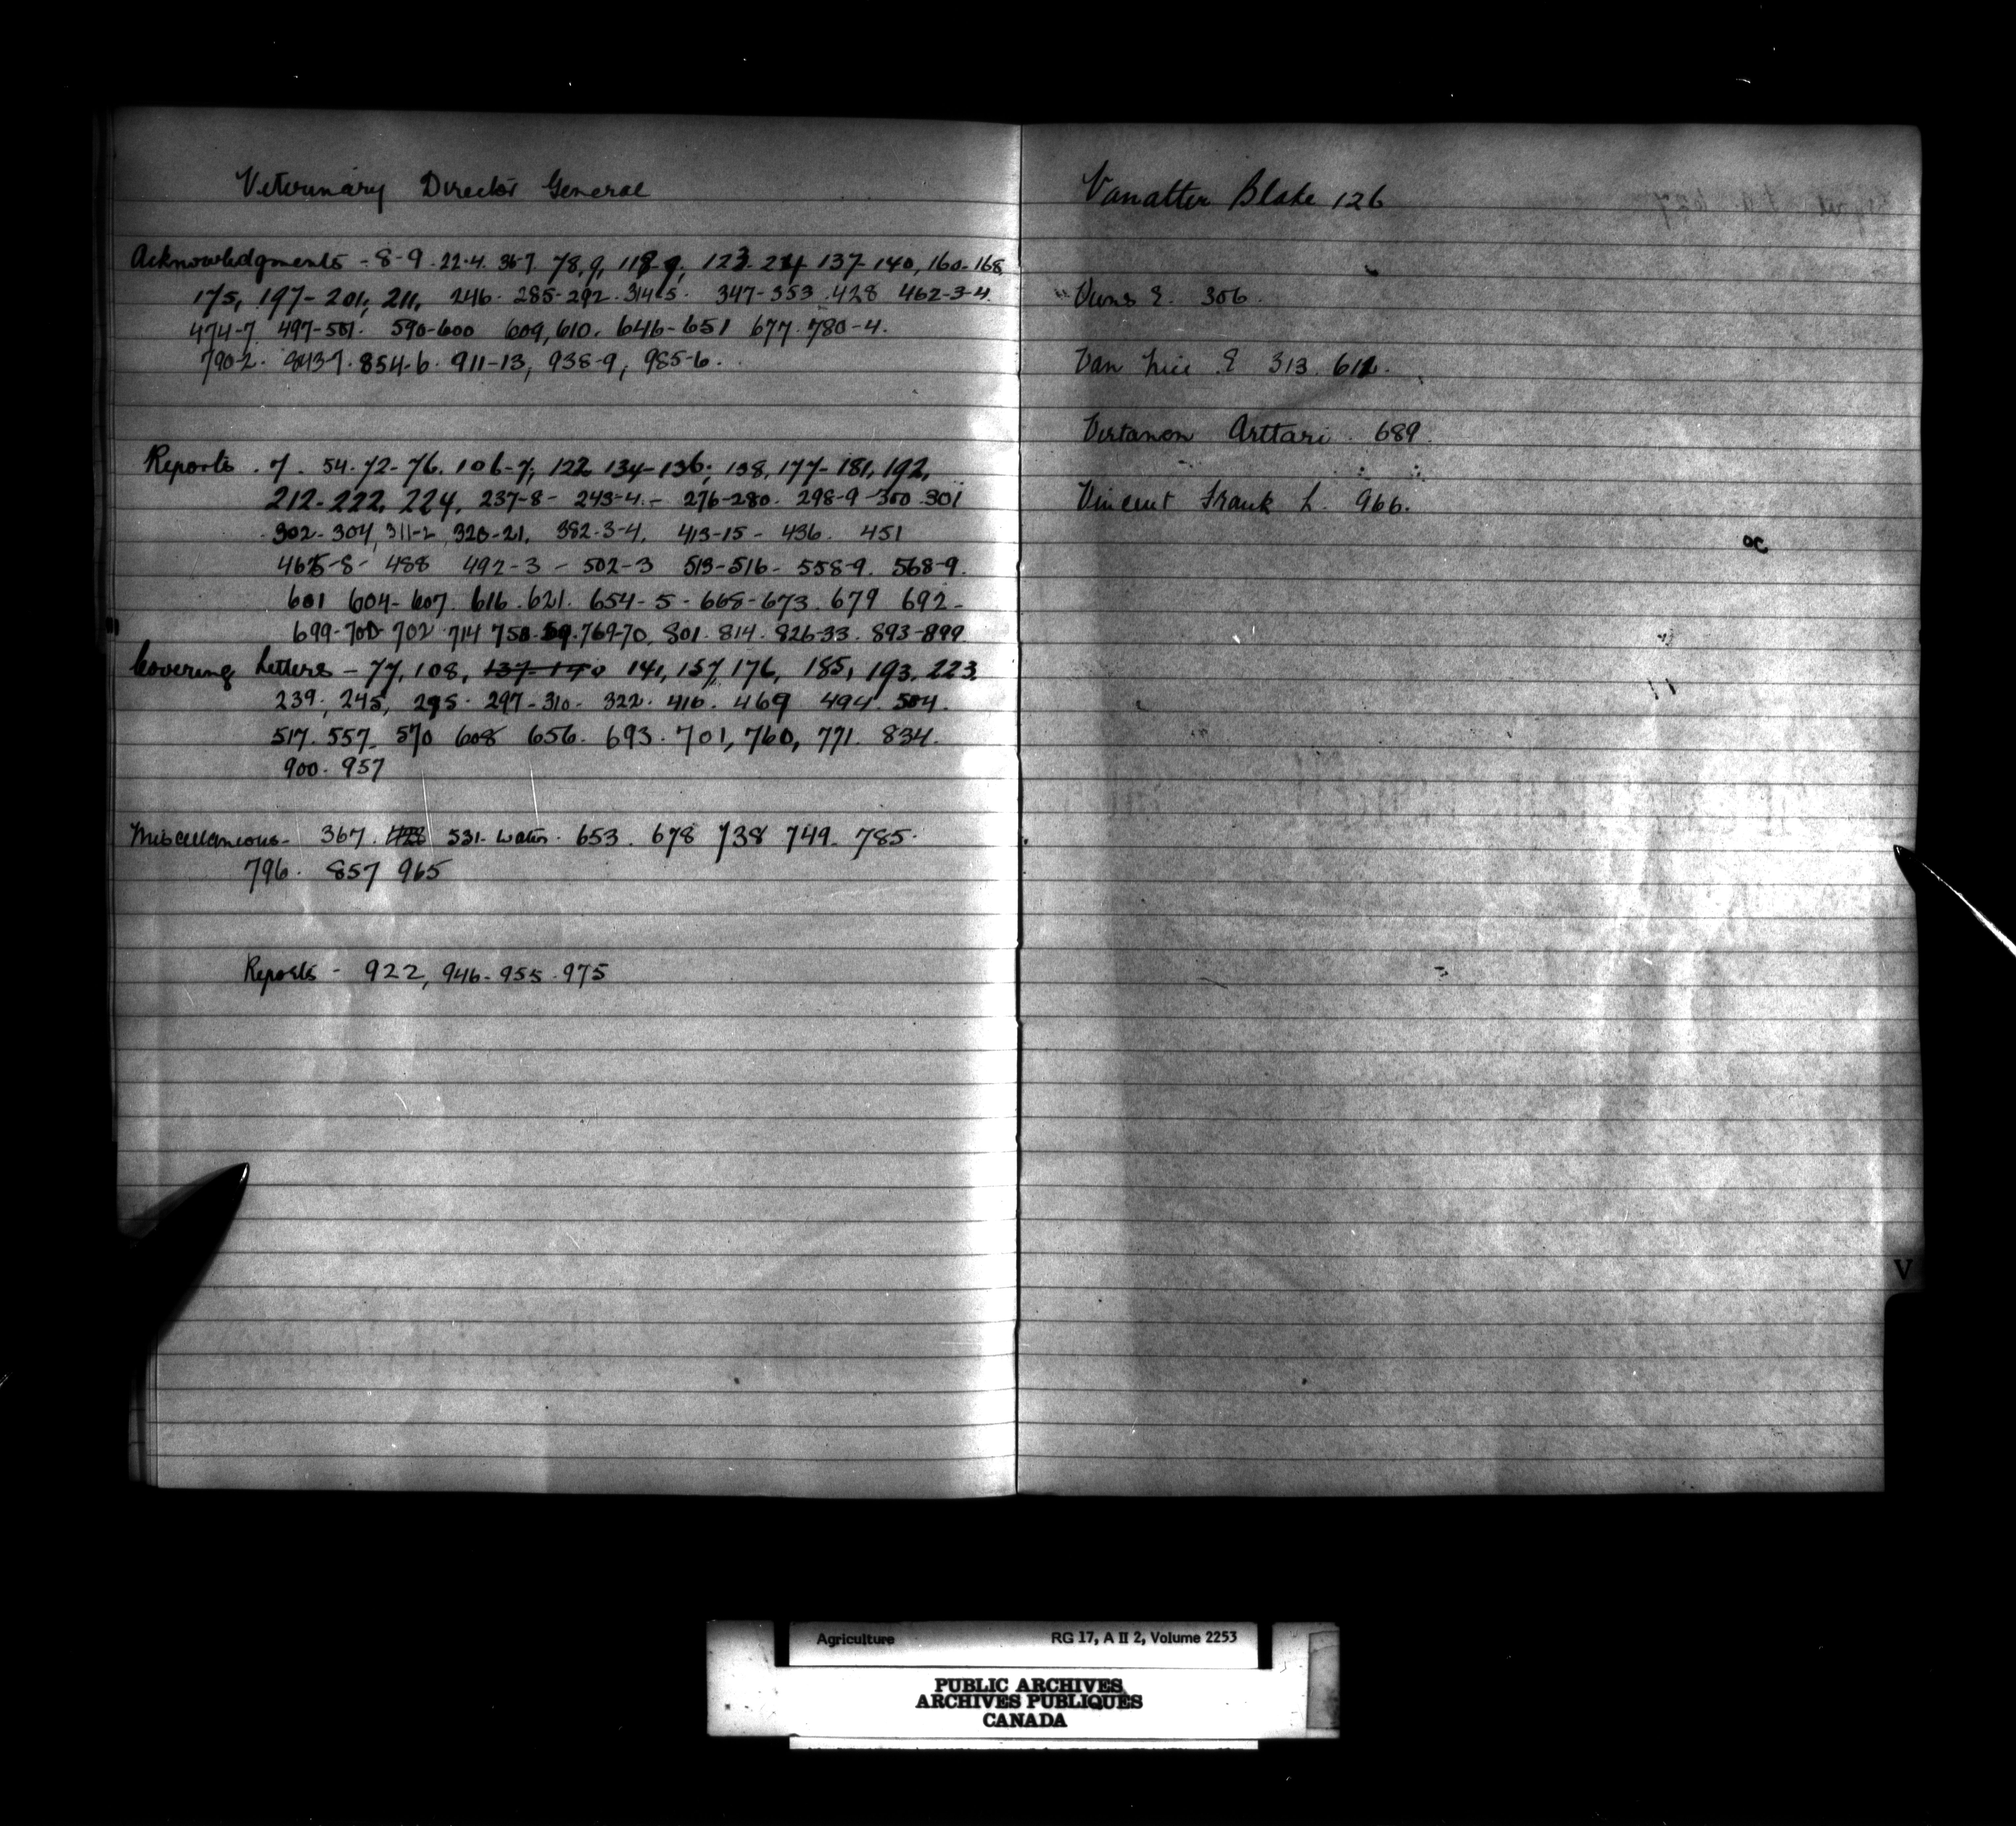 Veterinary Director General
Acknowledgments - 8-9. 22-4. 36-7. 78,9, 118-9, 123-24 137-140, 160-168,
175, 197-201, 211, 246. 285-292. 314-5. 347-353. 428 462-3-4.
474-7. 497-501. 590-600 609, 610. 646-651 677. 780-4.
790-2. 843-7. 854-6. 911-13, 938-9, 985-6.
Reports. 7. 54. 72-76. 106-7, 122 134-136, 138, 177-181, 192,
212-222, 224, 237-8- 243-4.- 276-280. 298-9-300.301
302-304, 311-2, 320-21. 382-3-4. 413-15- 436. 451
465-8- 488 492-3- 502-3 513-516- 558-9. 568-9.
601 604-607. 616. 621. 654-5- 668-673. 679 692-
699-700-702 714 758-59. 769-70. 801. 814. 826-33. 893-899
Covering Letters - 77, 108, 137-140 141, 157, 176, 185, 193, 223,
239, 245, 295. 297-310- 322. 416. 469 494. 504.
517. 557- 570 608 656. 693. 701, 760, 771. 834.
900. 957
Miscellaneous- 367. 428 531- water. 653. 678 738 749. 785.
796. 857 965
Reports - 922, 946-955.975
Vanatter Blake 126
E. 306.
Van E 313. 612.
Virtanon Arttari. 689.
Vincent Frank L. 966.
V
Agriculture RG 17, A II 2, Volume 2253
PUBLIC ARCHIVES
ARCHIVES PUBLIQUES
CANADA